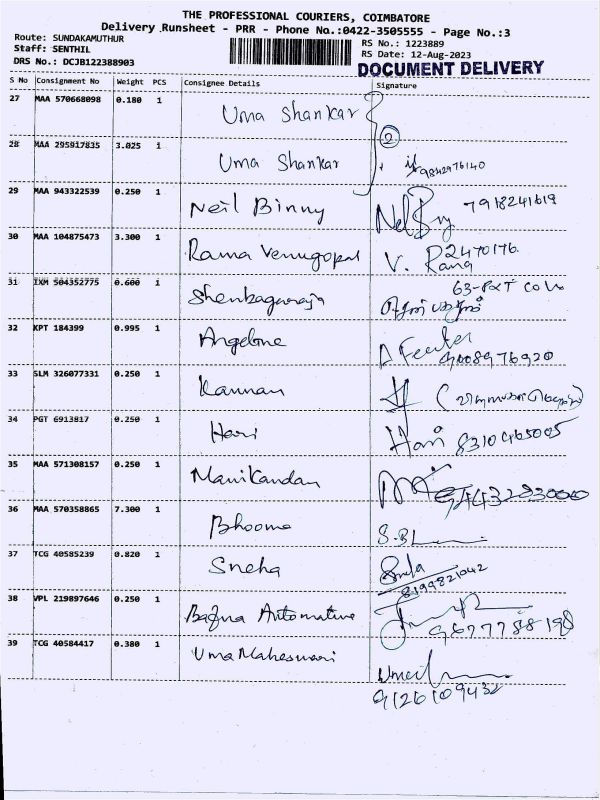 THE PROFESSIONAL COURIERS, COIMBATORE
Delivery Runsheet - PRR - Phone No.:0422-3505555 - Page No.:3
Route: SUNDAKAMUTHUR
RS No.: 1223889
Staff: SENTHIL
RS Date: 12-Aug-2023
DRS No.: DCJB122388903
DOCUMENT DELIVERY
S No Consignment No Weight PCS Consignee Details Signature
27 MAA 570668098 0.180 1 Uma Shankar
2
28 MAA 295917835 3.025 1 Uma Shankar 9842976140
29 MAA 943322539 0.250 1 Neil Binny 7918241619
30 MAA 104875473 3.300 1 Rama Venugopal V. Rama 2470176
31 IXM 504352775 0.600 1 Shenbagaraja
32 KPT 184399 0.995 1 9008976920
33 SLM 326077331 0.250 1 Kannan
34 PGT 6913817 0.250 1 Hari Hari 8310465005
35 MAA 571308157 0.250 1 Manikandan
36 MAA 570358865 7.300 1 Bhooma
37 TCG 40585239 0.820 1 Sneha Sneha
8199821042
38 VPL 219897646 0.250 1 Bafna Automative
9677788198
39 TCG 40584417 0.380 1 Uma Maheswari
9126109432